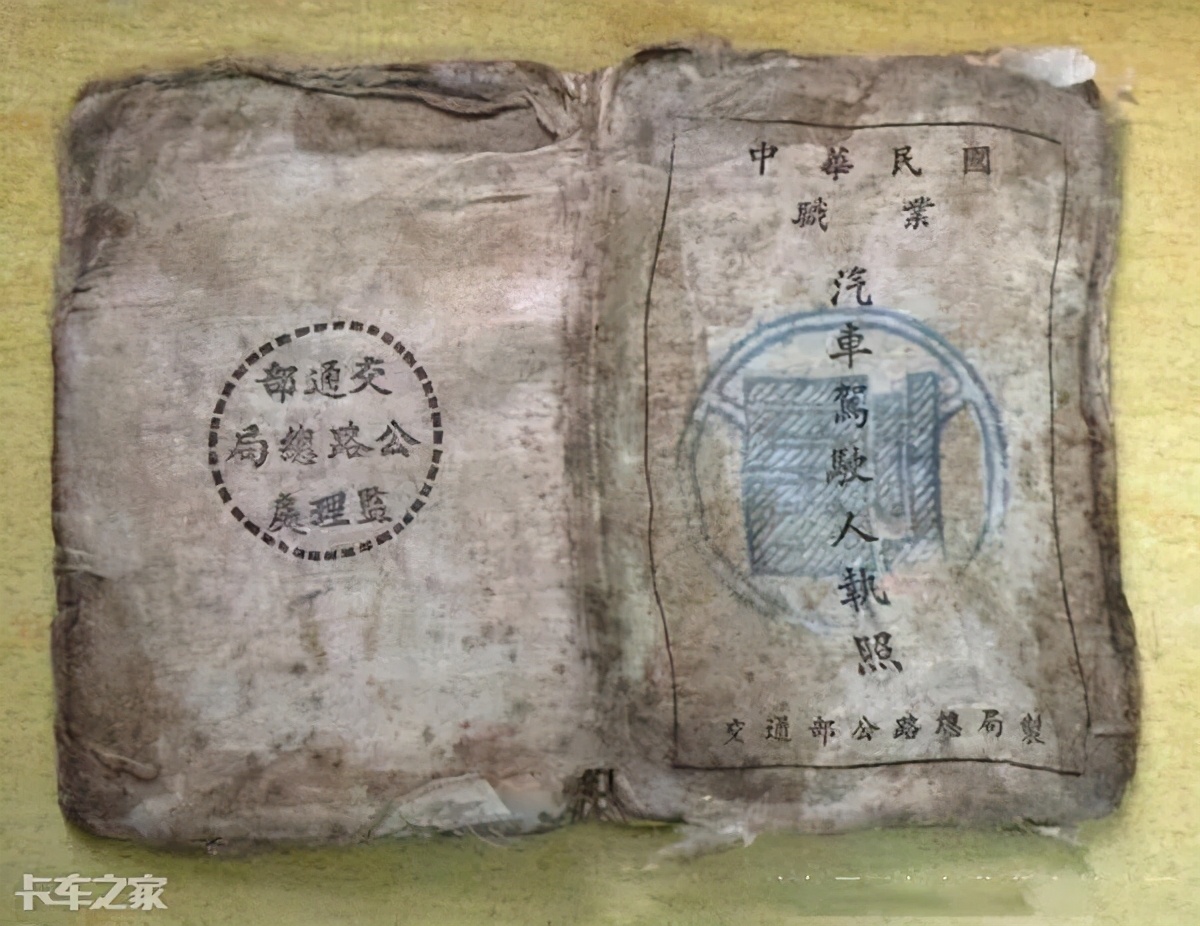 交通部
公路總局
監理處
中華民國
職業
汽車駕駛人執照
交通部公路總局製
卡车之家